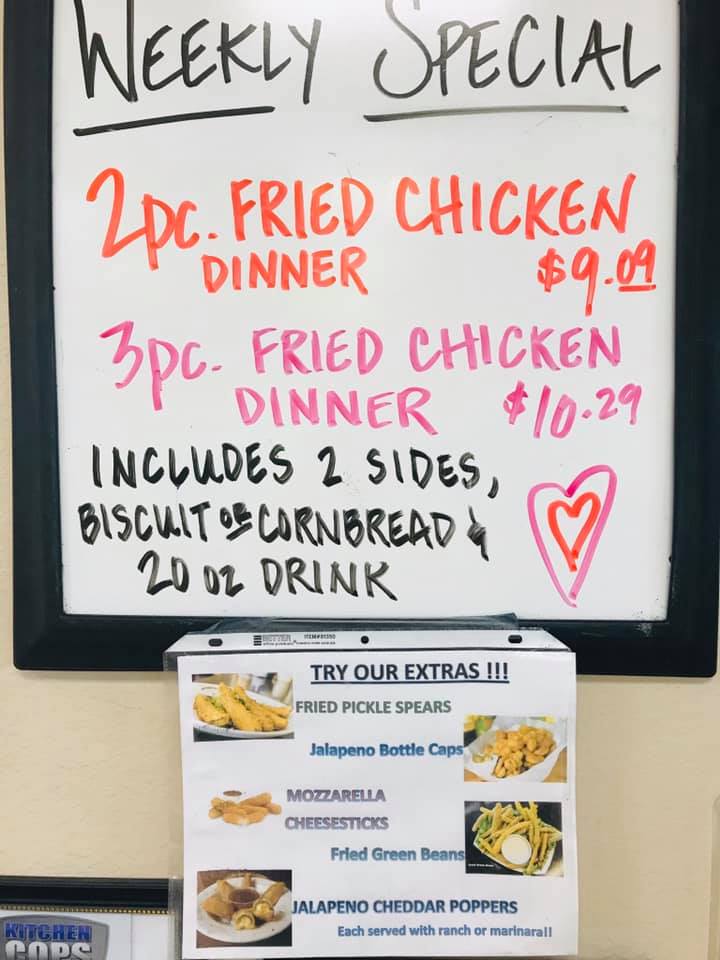 WEEKLY SPECIAL
2pc. FRIED CHICKEN
DINNER $9.09
3pc. FRIED CHICKEN
DINNER $10.29
INCLUDES 2 SIDES,
BISCUIT OR CORNBREAD &
20 oz DRINK
BETTER
TRY OUR EXTRAS !!!
FRIED PICKLE SPEARS
Jalapeno Bottle Caps
MOZZARELLA
CHEESESTICKS
Fried Green Beans
JALAPENO CHEDDAR POPPERS
Each served with ranch or marinara!!
KITCHEN
COPS